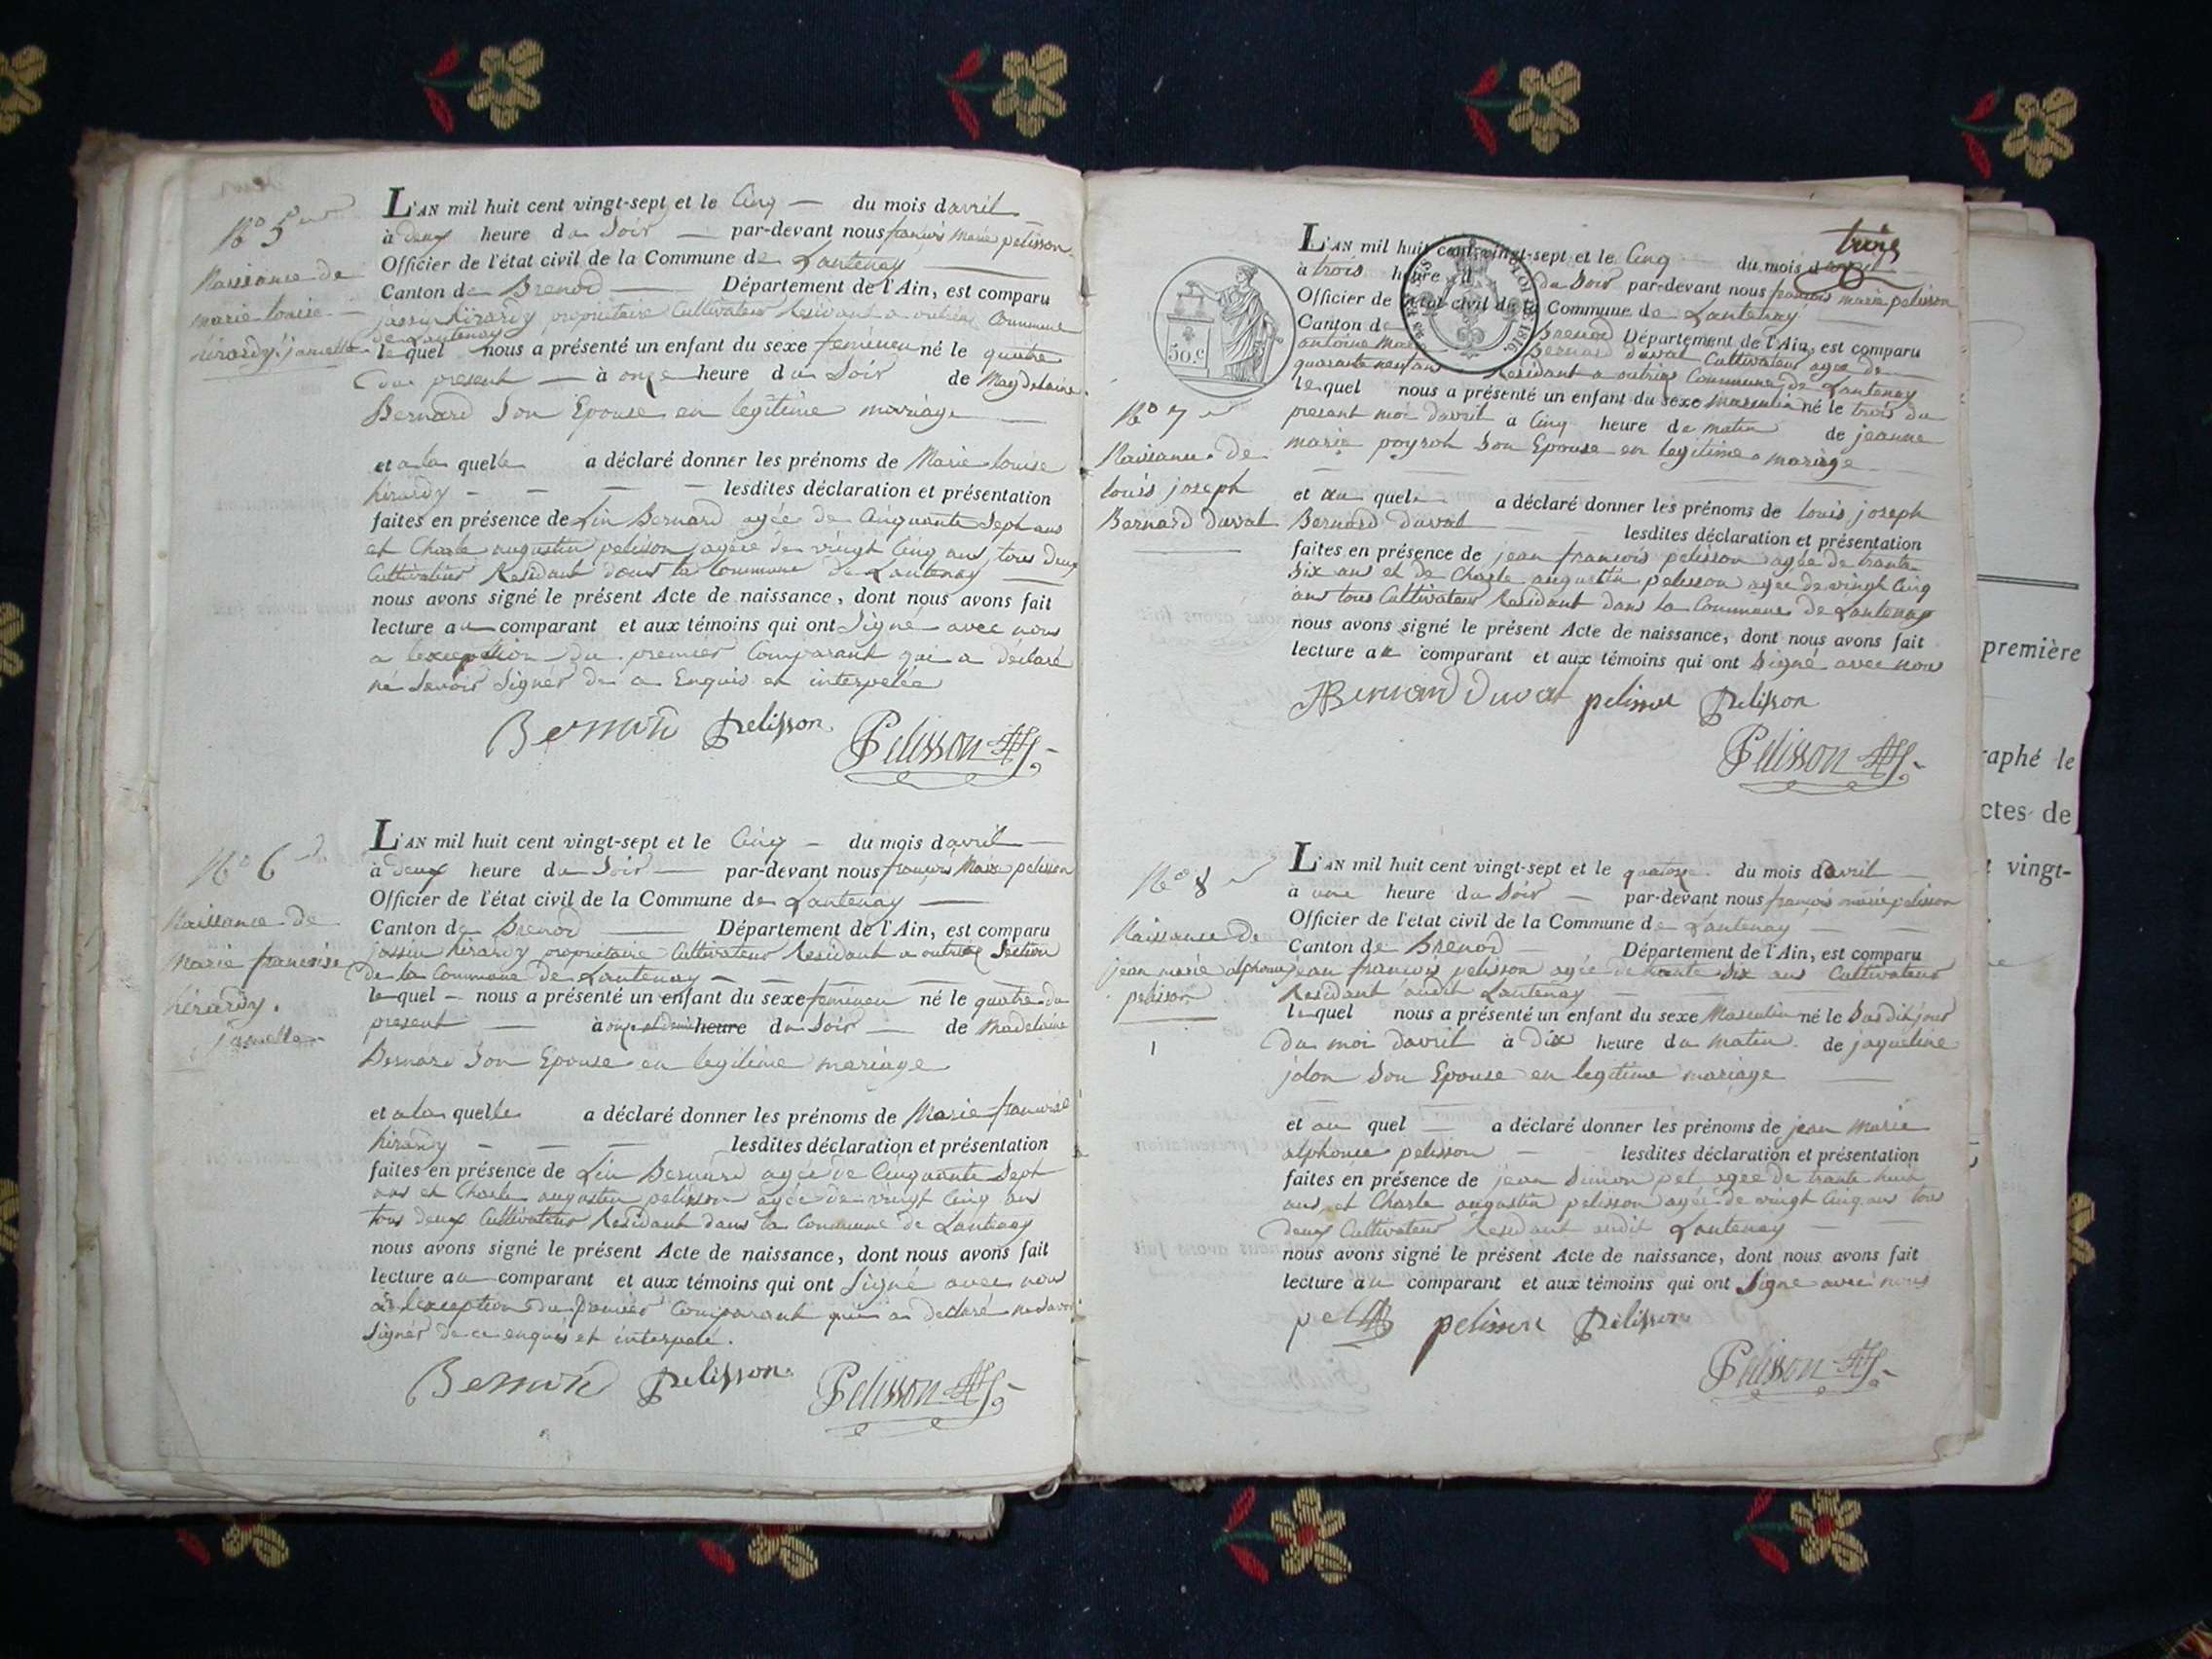 No 5
Naissance de
marie louise
hirardy jumelle
L'AN mil huit cent vingt-sept et le Cinq du mois d avril
à deux heure du Soir par-devant nous françois Marie pelisson
Officier de l'état civil de la Commune de Lantenay
Canton de Brenod Département de l'Ain, est comparu
hirardy propriétaire Cultivateur Residant a outriaz Commune
de Lantenay
le quel nous a présenté un enfant du sexe femineu né le quatre
du present à onze heure du Soir de Magdelaine
Bernard Son Epouse en legitime mariage
et a la quelle a déclaré donner les prénoms de Marie louise
hirardy lesdites déclaration et présentation
faites en présence de Lin Bernard agée de Cinquante Sept ans
et Charle augustin pelisson agée de vingt Cinq ans, tous deux
Cultivateur Residant dans la Commune de Lantenay
nous avons signé le présent Acte de naissance, dont nous avons fait
lecture au comparant et aux témoins qui ont Signé avec nous
a lexception du premier Comparant qui a déclaré
ne Savoir Signer de ce Enquis et interpelée
Bernard pelisson Pelisson
No 6
Naissance de
Marie francoise
hirardy.
jumelle
L'AN mil huit cent vingt-sept et le Cinq du mois d avril
à deux heure du Soir par-devant nous françois Marie pelisson
Officier de l'état civil de la Commune de Lantenay
Canton de Brenod Département de l'Ain, est comparu
hirardy propriétaire Cultivateur Residant a outriaz Section
de la Commune de Lantenay
le quel nous a présenté un enfant du sexe femineu né le quatre du
present à onze et demi heure du Soir de Madelaine
Bernard Son Epouse en legitime mariage
et a la quelle a déclaré donner les prénoms de Marie francoise
hirardy lesdites déclaration et présentation
faites en présence de Lin Bernard agée de Cinquante Sept
ans et Charle augustin pelisson agée de vingt Cinq ans
tous deux Cultivateur Residant dans la Commune de Lantenay
nous avons signé le présent Acte de naissance, dont nous avons fait
lecture au comparant et aux témoins qui ont Signé avec nous
a lexception du premier Comparant qui a declaré ne Savoir
Signer de ce enquis et interpelé.
Bernard pelisson Pelisson
50 c
1816
No 7
Naissance de
louis joseph
Bernard Duval
L'AN mil huit cent vingt-sept et le Cinq du mois d avril
à trois heure du Soir par-devant nous françois marie pelisson
Officier de l'état civil de Commune de Lantenay
Canton de Brenod Département de l'Ain, est comparu
antoine Marie Bernard duval Cultivateur agée de
quarante neuf ans Residant a outriaz Commune de Lantenay
le quel nous a présenté un enfant du sexe masculin né le trois du
present moi davril à Cinq heure de matin de jeanne
marie Son Epouse en legitime mariage
et au quel a déclaré donner les prénoms de louis joseph
Bernard Duval lesdites déclaration et présentation
faites en présence de jean francois pelisson agée de trante
Six ans et de Charle augustin pelisson agée de vingt Cinq
ans tous Cultivateur Residant dans la Commune de Lantenay
nous avons signé le présent Acte de naissance, dont nous avons fait
lecture au comparant et aux témoins qui ont Signé avec nous
Bernard Duval pelisson pelisson
Pelisson
No 8
Naissance de
jean marie alphonse
pelisson
L'AN mil huit cent vingt-sept et le quatorze du mois d avril
à une heure du Soir par-devant nous françois marie pelisson
Officier de l'état civil de la Commune de Lantenay
Canton de Brenod Département de l'Ain, est comparu
jean francois pelisson agée de trante Six ans Cultivateur
Residant audit Lantenay
le quel nous a présenté un enfant du sexe Masculin né le Susdit jour
du moi davril à Dix heure du matin de jaqueline
jolon Son Epouse en legitime mariage
et au quel a déclaré donner les prénoms de jean Marie
alphonse pelisson lesdites déclaration et présentation
faites en présence de jean Simon pet agee de trante huit
ans et Charle augustin pelisson agée de vingt Cinq ans tous
deux Cultivateur Residant audit Lantenay
nous avons signé le présent Acte de naissance, dont nous avons fait
lecture au comparant et aux témoins qui ont Signé avec nous
pet pelisson pelisson
Pelisson
première
raphé le
ctes de
vingt-